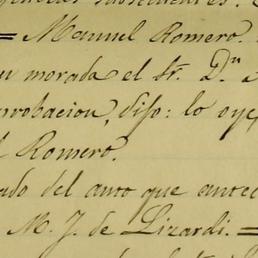 = Manuel Romero.
morada el Sr. Dn
probacion, dijo: lo oye,
Romero.
ado del auto que antec
M. J. de Lizardi. =